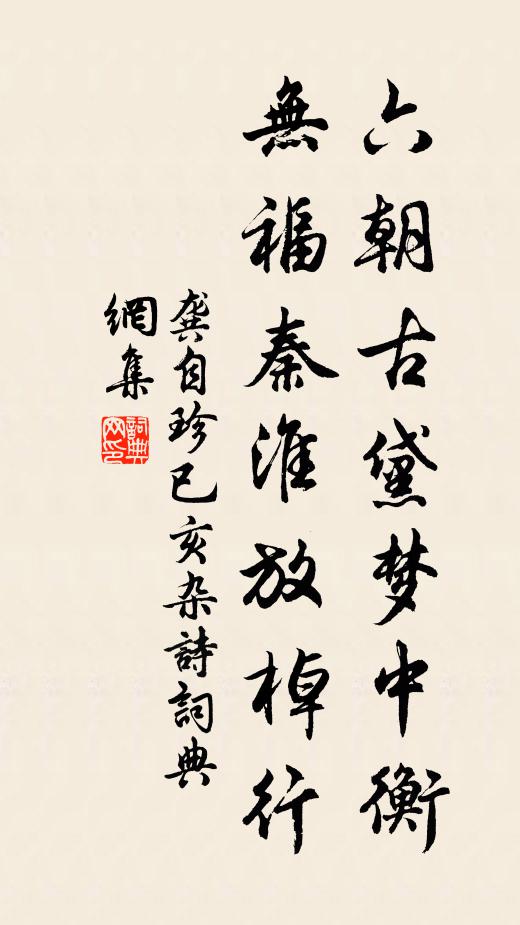 六朝古黛梦中衡
無福秦淮放棹行
龔自珍己亥杂詩詞典
網集
詞典
网印